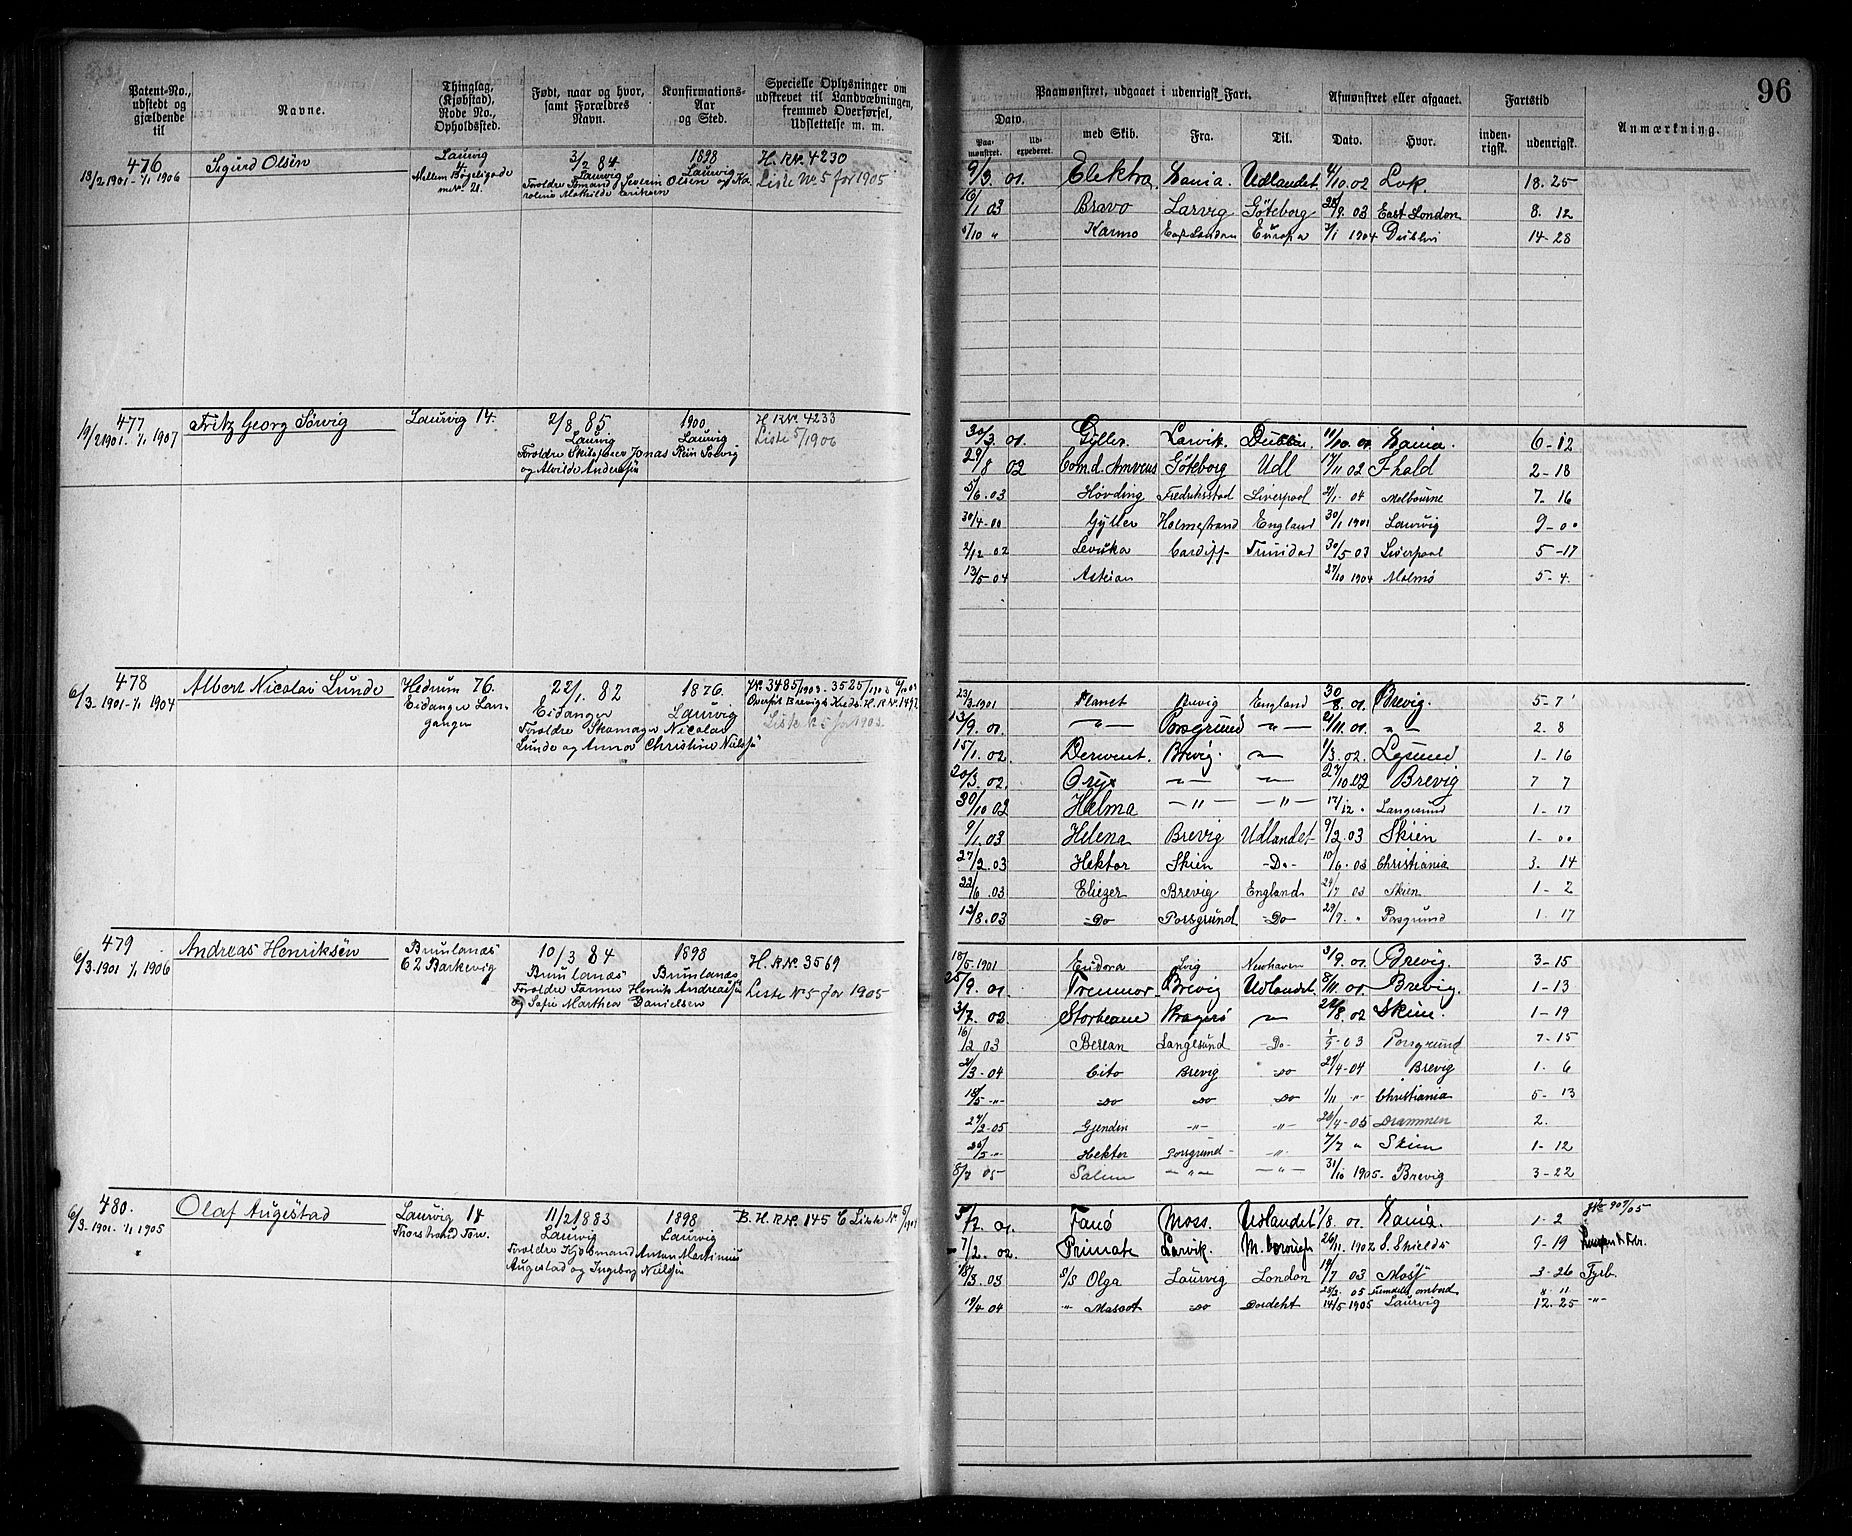 96
Patent-No., udstedt og gjældende til
Navne.
Thinglag, (Kjøbstad), Rode No., Opholdssted.
Født, naar og hvor, samt Forældres Navn.
Konfirmations-Aar og Sted.
Specielle Oplysninger om udskrevet til Landværningen, fremmed Overførsel, Udslettelse m. m.
Paamønstret, udgaaet i udenrigsk Fart.
Afmønstret eller afgaaet.
Fartstid
Anmærkning.
Dato.
Paa-mønstret.
Ud-expederet.
med Skib.
Fra:
Til.
Dato.
Hvor.
inden-rigsk.
udenrigsk.
476
18/2 1901 - 1/1 1906
Sigurd Olsen
Laurvig 4
Mellem Bøgeligade
21.
3/2 84
Laurvig
Forældre Severin Olsen og Ka-
roline Mathilde
1898
Laurvig
H. R. No. 4230
Liste No 5 for 1905
9/3. 01. Elektra. Xania. Udlandet 4/10. 02 18. 25
10/1 03 Bravo Larvig Göteborg 28/9. 03 East London 8. 12
5/10 " Karmo East London Europa 3/1 1904 Dublin 14-28
477
19/2 1901. 1/1 1907
Fritz Georg Sörvig
Laurvig 14.
2/8 85
Laurvig
Forældre Jonas Rein Sörvig
og Alvilde Andersen
1900
Laurvig
H R No. 4233
Liste 5/1906
30/3. 01. Gyller. Larvik. Dublin. 11/10. 01 Xania. 6-12
29/8 02 Comd. Göteborg Udl 17/11 02 F.hald 2-18
5/6. 03 Hövding Fredriksstad Liverpool 21/1. 04 Melbourne 7. 16
30/4-00 Gyller Holmestrand England 30/1 1901 Laurvig 9-00
2/12 02 Levuka Cardiff Trinidad 30/5 03 Liverpool 5-17
13/5-04 27/10 1904 Malmö 5-4.
478
6/3-1901-1/1 1904
Albert Nicolai Lunde
Hedrum 76.
Eidanger Lan-
gangen
22/1. 82
Eidanger
Forældre Skomager Nicolai
Lunde og Anna Christine Nielsen
1876.
Laurvig
No. 3485/1903 - 3525/1903
Overført Brevigs Kreds. H. R. No. 1492
Liste No 5 for 1903.
23/3-1901 Planet Brevig England 30/8. 01. Brevig. 5-7
13/9. 01. -"- Porsgrund -"- 21/11. 01. " - 2. 8
15/1. 02. Derwent. Brevig. -"- 1/3. 02. Lgsund 1-16
20/3. 02. Oryx -"- -"- 27/10 02 Brevig 7 7
30/10 02 Helma -"- -"- 17/12 " Langesund 1-17
9/1. 03 Helena Brevig Udlandet 9/2. 03 Skien 1-00
27/2. 03 Hektor Skien -Do- 10/6. 03 Christiania 3. 14
22/6. 03 Eliezer Brevig England 24/7 03 Skien 1-2
12/8. 03 -Do Porsgrund -Do 29/7. " Porsgrund 1. 17
479
6/3-1901 1/1 1906
Andreas Henriksen
Brunlanæs
62 Barkevig
10/3 84
Brunlanæs
Forældre Tømmer Henrik Andreassen
og Sofie Marthea Danielsen
1898
Brunlanæs
H. R No. 3569
Liste No 5 for 1905
18/5-1901 Eudora Newhaven 3/9. 01. Brevig. 3-15
25/9. 01. Trenmor. Brevig Udlandet. 8/11. 01. Brevig. 1-13
3/7. 02. Kragerö -"- 22/8. 02 Skien. 1-19
16/2 03 Berean Langesund -Do- 1/5-03 Porsgrund 7-15
21/3-04 Cito Brevig -Do 27/4-04 Brevig 1. 6
18/5-"- -Do -Do -Do 1/11 "- Christiania 5-13
27/2-05 Gjendin -"- -"- 26/4-05 Drammen 2.
25/5-"- Hektor Porsgrund- -"- 7/7 " Skien 1-12
8/7 05- Salem -"- -"- 31/10 1905- Brevig 3-22
480.
6/3-1901. 1/1 1905
Olaf Augestad
Laurvig 14
Thorstrand
11/2 1883
Laurvig
Forældre Kjöbmand Anton Martinius
Augestad og Ingeborg Nielsen
1898
Laurvig
B. H. R No. 145 C
5/7. 01. Fanö Moss. Udlandet 7/8. 01. Xania. 1-2
7/2. 02. Primate Larvik. M. borough 26/11. 1902 S. Shields 9-19
18/3. 03 S/S Olga Laurvig London 19/7 03 Moss 3-26 Fyrb.
19/4 04 " Mascot -Do Dordrecht 14/5 1905 Laurvig 12. 25 -"-